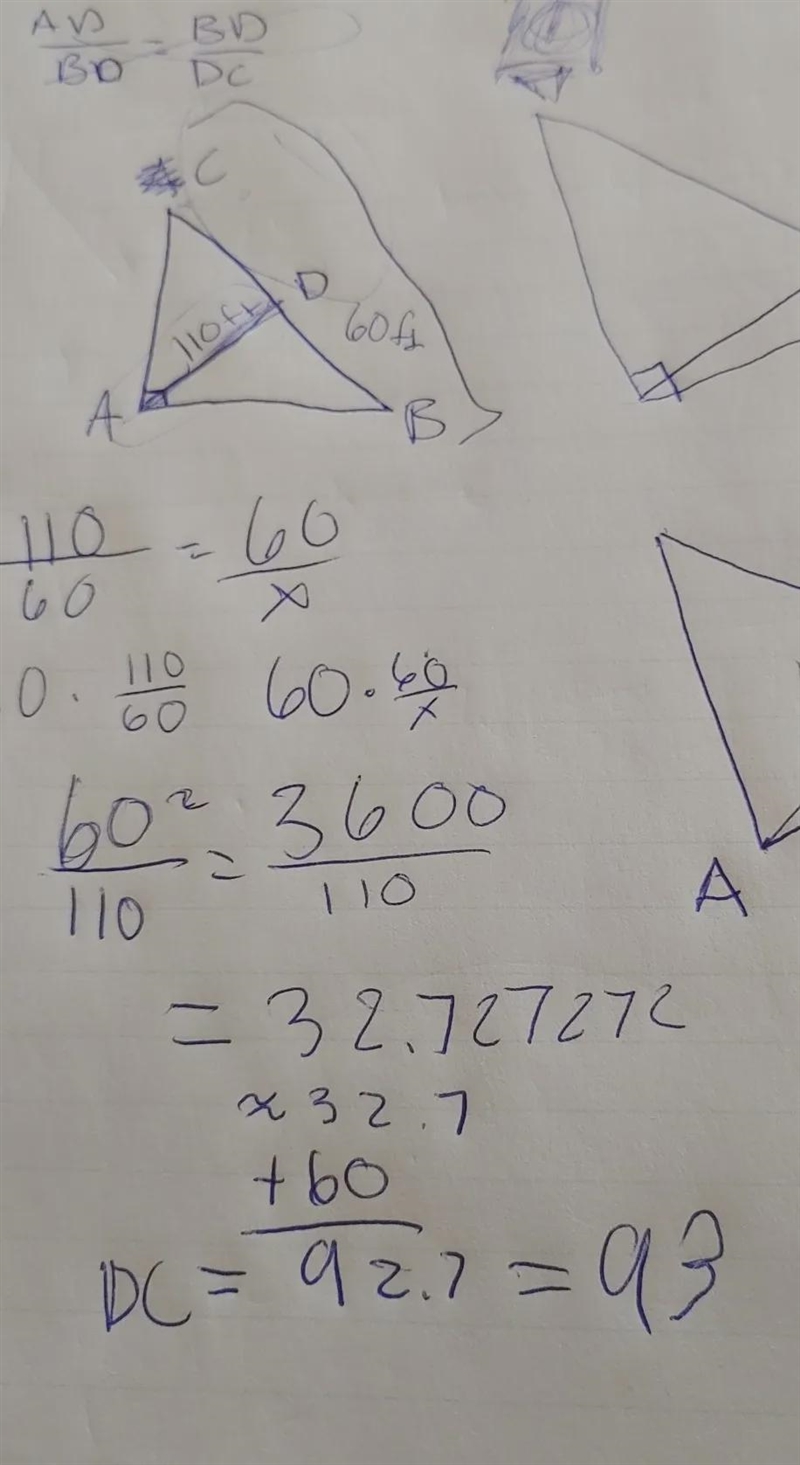 AD/BD = BD/DC
C
D
110ft
60ft
A
B
110/60 = 60/x
0 · 110/60 60 · 60/x
60²/110 = 3600/110
A
= 32.727272
x 32.7
+60
DC = 92.7 = 93